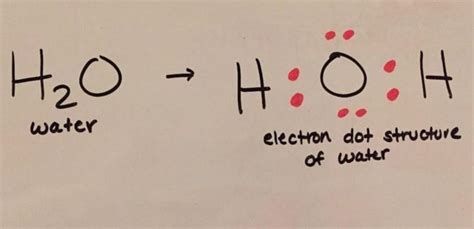 H₂O → H : O : H
water
electron dot structure
of water